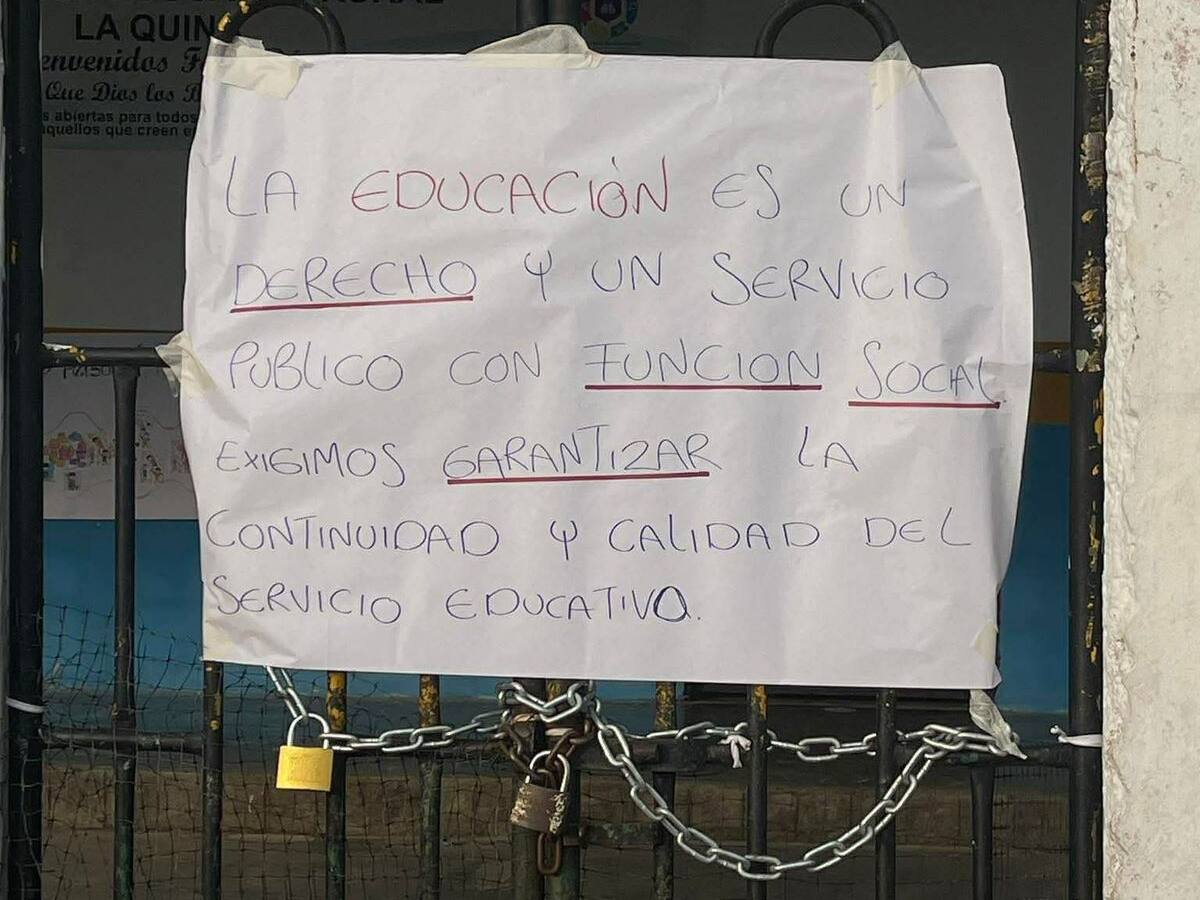 LA QUIN
envenidos F
Que Dios los B
s abiertas para todos
aquellos que creen e
LA EDUCACIÓN ES UN
DERECHO Y UN SERVICIO
PUBLICO CON FUNCION SOCIAL.
EXIGIMOS GARANTIZAR LA
CONTINUIDAD Y CALIDAD DEL
SERVICIO EDUCATIVO.